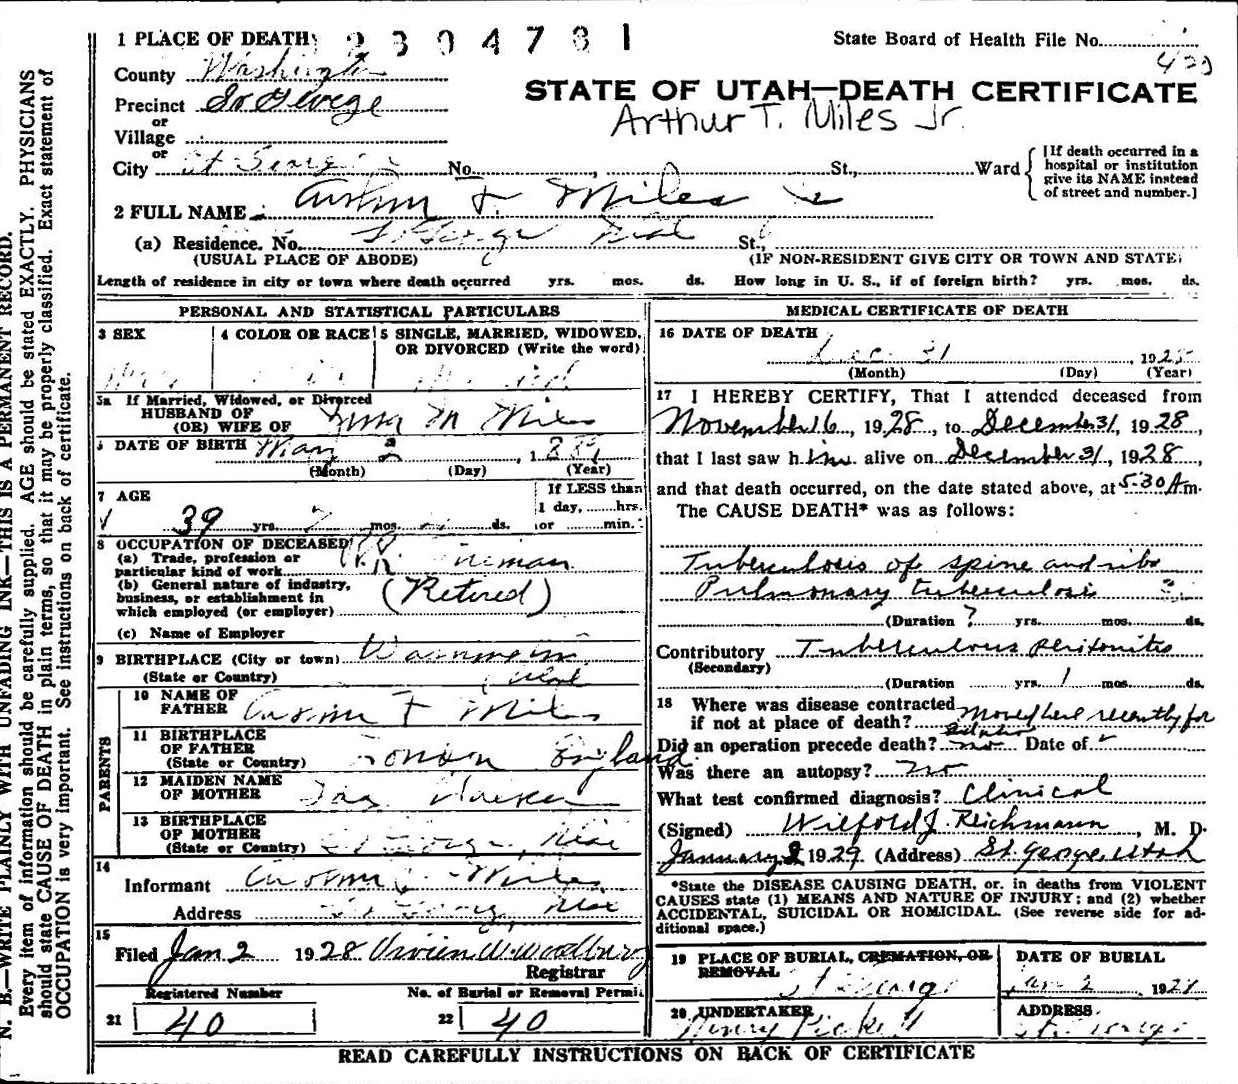 1 PLACE OF DEATH 2304781
State Board of Health File No.
County Washington
STATE OF UTAH—DEATH CERTIFICATE
Precinct St George
Arthur T. Miles Jr.
or
Village
or
City St George No. St., Ward
[If death occurred in a
hospital or institution
give its NAME instead
of street and number.]
2 FULL NAME Miles
(a) Residence. No. St George St.,
(USUAL PLACE OF ABODE) (IF NON-RESIDENT GIVE CITY OR TOWN AND STATE)
Length of residence in city or town where death occurred yrs. mos. ds. How long in U. S., if of foreign birth? yrs. mos. ds.
PERSONAL AND STATISTICAL PARTICULARS
3 SEX
4 COLOR OR RACE
5 SINGLE, MARRIED, WIDOWED,
OR DIVORCED (Write the word)
5a If Married, Widowed, or Divorced
HUSBAND OF
(OR) WIFE OF M Miles
6 DATE OF BIRTH May 2
(Month) (Day) (Year)
7 AGE
If LESS than
1 day, hrs.
39 yrs. mos. ds. or min.
8 OCCUPATION OF DECEASED
(a) Trade, profession or
particular kind of work
(b) General nature of industry,
business, or establishment in
which employed (or employer) (Retired)
(c) Name of Employer
9 BIRTHPLACE (City or town)
(State or Country)
PARENTS
10 NAME OF
FATHER F Miles
11 BIRTHPLACE
OF FATHER
(State or Country) London England
12 MAIDEN NAME
OF MOTHER
13 BIRTHPLACE
OF MOTHER
(State or Country) St George,
14
Informant Miles
Address St George,
15
Filed Jan 2 1928 Vivien W. Woodbury
Registrar
Registered Number No. of Burial or Removal Permit
21 40 22 40
MEDICAL CERTIFICATE OF DEATH
16 DATE OF DEATH
Dec 31, 1928
(Month) (Day) (Year)
17 I HEREBY CERTIFY, That I attended deceased from
November 16, 1928, to December 31, 1928
that I last saw him alive on December 31, 1928,
and that death occurred, on the date stated above, at 5:30 A m.
The CAUSE DEATH* was as follows:
Tuberculosis of spine and ribs
Pulmonary tuberculosis
(Duration ? yrs. mos. ds.
Contributory Tuberculous peritonitis
(Secondary)
(Duration yrs. 1 mos. ds.
18 Where was disease contracted
if not at place of death? Moved here recently for
Did an operation precede death? no Date of
Was there an autopsy? no
What test confirmed diagnosis? Clinical
(Signed) Wilford J. Reichmann, M. D.
January 2 1929 (Address) St. George, Utah
*State the DISEASE CAUSING DEATH, or, in deaths from VIOLENT
CAUSES state (1) MEANS AND NATURE OF INJURY; and (2) whether
ACCIDENTAL, SUICIDAL OR HOMICIDAL. (See reverse side for ad-
ditional space.)
19 PLACE OF BURIAL, CREMATION, OR
REMOVAL St George
DATE OF BURIAL
Jan 2 1928
20 UNDERTAKER
Henry Pickett
ADDRESS
St George
READ CAREFULLY INSTRUCTIONS ON BACK OF CERTIFICATE
N. B.—WRITE PLAINLY WITH UNFADING INK—THIS IS A PERMANENT RECORD.
Every item of information should be carefully supplied. AGE should be stated EXACTLY. PHYSICIANS
should state CAUSE OF DEATH in plain terms, so that it may be properly classified. Exact statement of
OCCUPATION is very important. See instructions on back of certificate.